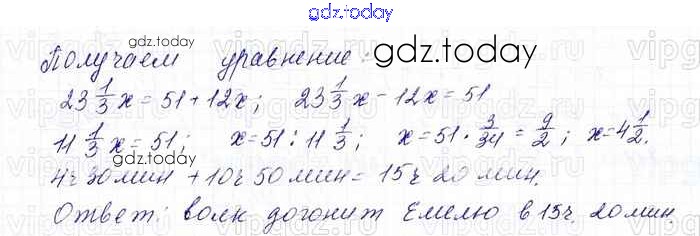 gdz.today
Получаем уравнение:
gdz.today
23 1/3 x = 51 + 12x; 23 1/3 x - 12x = 51
11 1/3 x = 51; x = 51 : 11 1/3; x = 51 · 3/34 = 9/2; x = 4 1/2.
gdz.today
4ч 30 мин + 10ч 50 мин = 15ч 20 мин.
Ответ: волк догонит Емелю в 15ч 20 мин